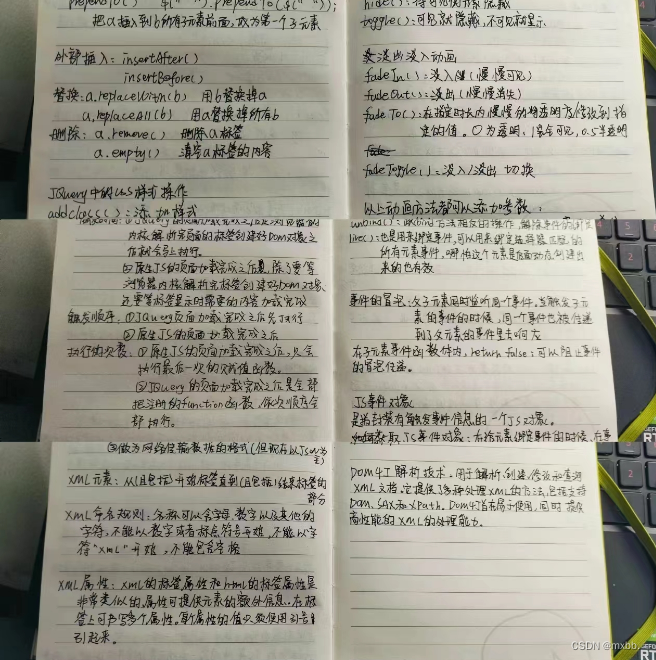 prependTo() $(" ").prependTo($(" ");
把a插入到b所有子元素前面,成为第一个子元素
外部插入: insertAfter()
insertBefore()
替换: a.replaceWith(b) 用b替换掉a
a.replaceAll(b) 用a替换掉所有b
删除: a.remove() 删除a标签
a.empty() 清空a标签的内容
JQuery中的css样式操作
addclass(): 添加样式
toggle(): 可见就隐藏,不可见就显示
淡出淡入动画
fadeIn(): 淡入 (慢慢可见)
fadeOut(): 淡出 (慢慢消失)
fadeTo(): 在指定时长内慢慢的将透明度修改到指
定的值。0为透明,1完全可见,0.5半透明
fadeToggle(): 淡入/淡出 切换
以上动画方法都可以添加参数:
内核解析完页面的标签创建好DOM对象之
后就会马上执行。
②原生JS的页面加载完成之后,除了要等
浏览器内核解析完标签创建好DOM对象,
还要等标签显示时需要的内容加载完成
触发顺序: ①JQuery页面加载完成之后先执行
②原生JS的页面加载完成之后
执行的次数: ①原生JS的页面加载完成之后,只会
执行最后一次的赋值函数。
②JQuery的页面加载完成之后是全部
把注册的function函数,依次顺序全
部执行。
live(): 也是用来绑定事件,可以用来绑定选择器匹配的
所有元素事件。哪怕这个元素是后面动态创建出
来的也有效
事件的冒泡: 父子元素同时监听同一个事件。当触发子元
素的事件的时候,同一个事件也被传递
到了父元素的事件里去响应
在子元素事件函数体内,return false; 可以阻止事件
的冒泡传递。
JS事件对象
是封装有触发事件信息的一个JS对象。
获取JS事件对象: 在给元素绑定事件的时候,在事
③做为网络传输数据的格式(但现在以JSON为
主)
XML元素: 从(且包括)开始标签直到(且包括)结束标签的
部分
XML命名规则: 名称可以含字母、数字以及其他的
字符,不能以数字或者标点符号开始,不能以字
符“xml”开始,不能包含空格
XML属性: XML的标签属性和html的标签属性是
非常类似的属性可提供元素的额外信息,在标
签上可书写多个属性。每个属性的值必须使用引号
引起来。
DOM4J解析技术,用于解析、创建、修改和查询
XML文档,它提供了多种处理XML的方法,包括支持
DOM、SAX和XPath。Dom4J旨在易于使用,同时提供
高性能的XML的处理能力。
CSDN @mxbb.